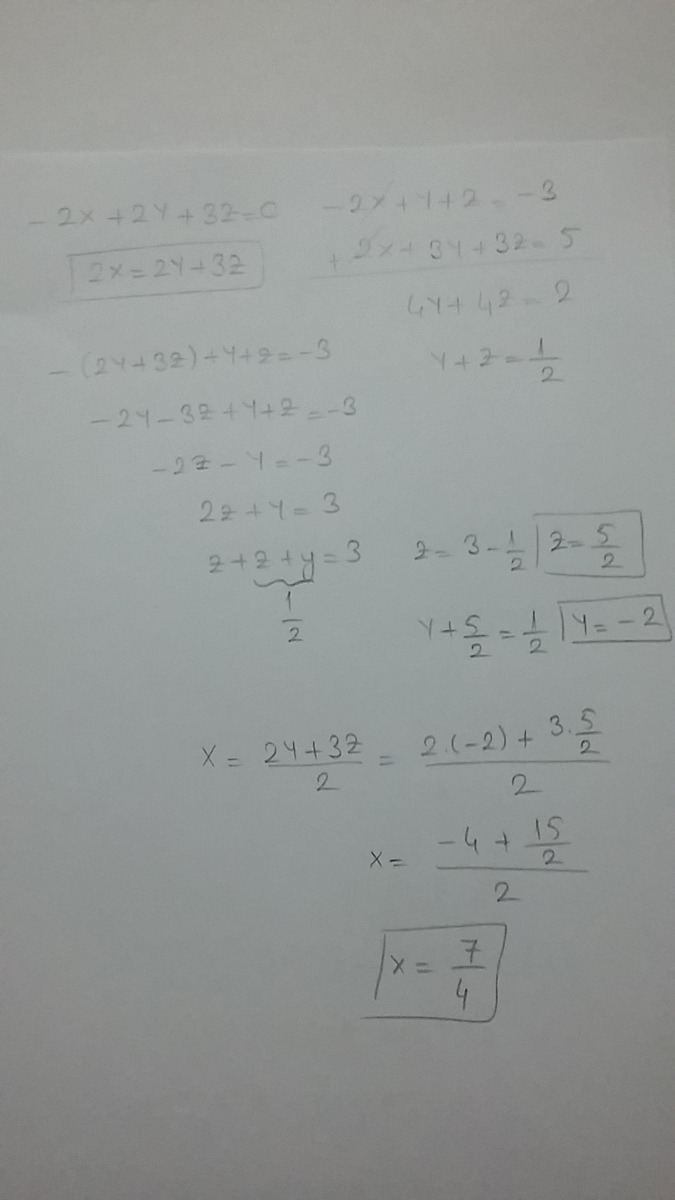 -2x+2y+3z=0
2x=2y+3z
-2x+y+z=-3
+ 2x+3y+3z=5
4y+4z=2
y+z=1/2
-(2y+3z)+y+z=-3
-2y-3z+y+z=-3
-2z-y=-3
2z+y=3
z+z+y=3
1/2
z=3-1/2 z=5/2
y+5/2=1/2 y=-2
x=(2y+3z)/2=(2.(-2)+3.5/2)/2
x=(-4+15/2)/2
x=7/4